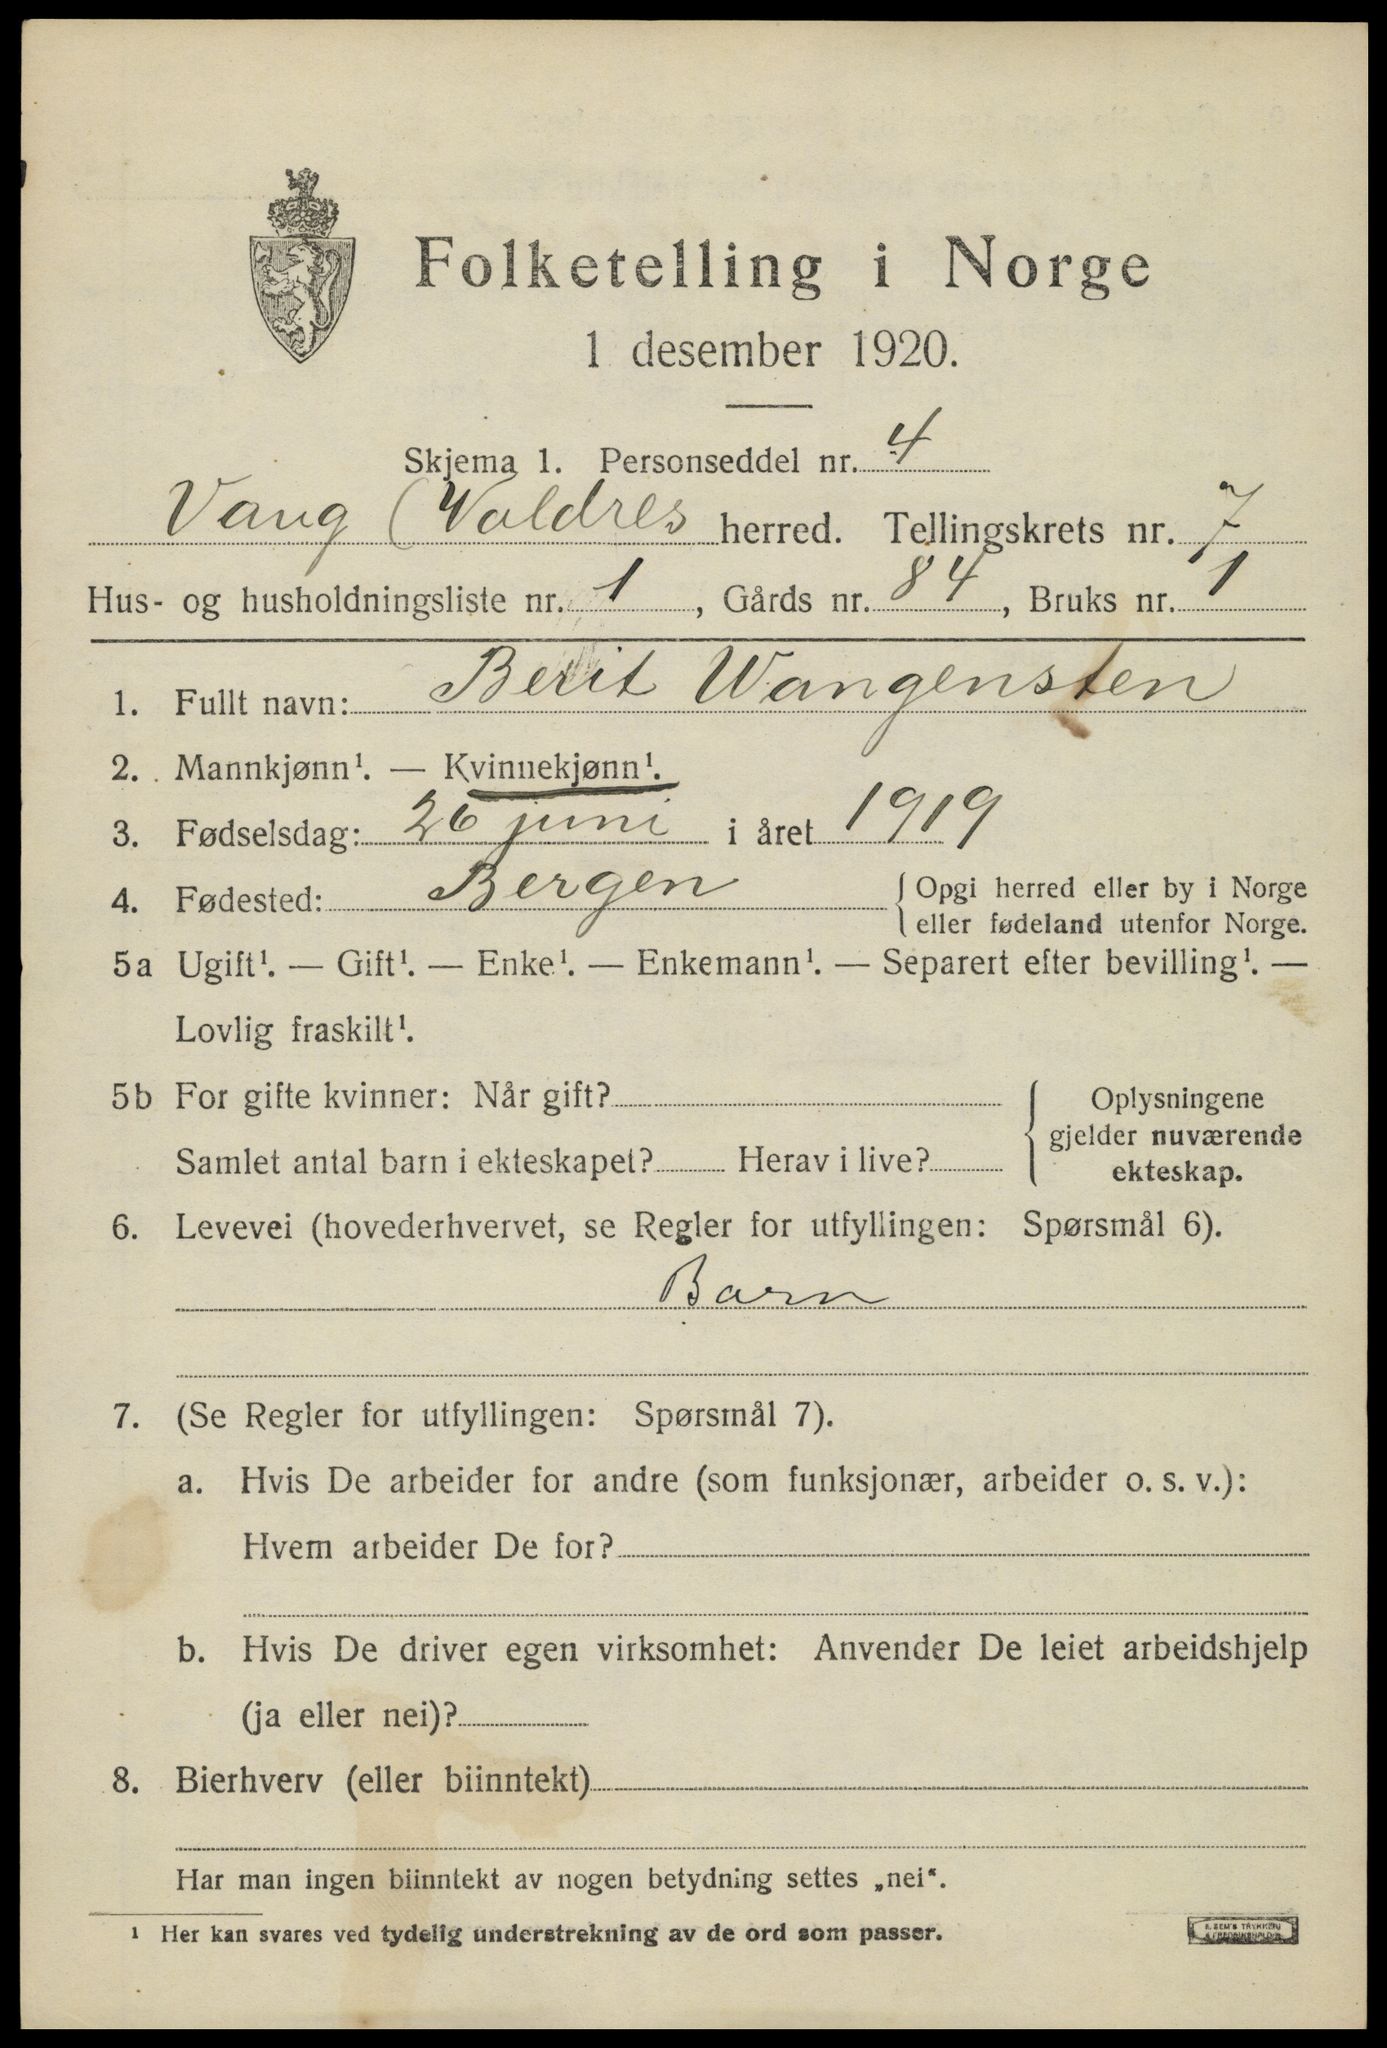 Folketelling i Norge
1 desember 1920.
Skjema 1. Personseddel nr. 4
Vang (Valdres herred. Tellingskrets nr. 7
Hus- og husholdningsliste nr. 1, Gårds nr. 84, Bruks nr. 1
1. Fullt navn: Berit Wangensten
2. Mannkjønn¹. — Kvinnekjønn¹.
3. Fødselsdag: 26 juni i året 1919
4. Fødested: Bergen { Opgi herred eller by i Norge
eller fødeland utenfor Norge.
5a Ugift¹. — Gift¹. — Enke¹. — Enkemann¹. — Separert efter bevilling¹. —
Lovlig fraskilt¹.
5b For gifte kvinner: Når gift? { Oplysningene
gjelder nuværende
Samlet antal barn i ekteskapet? Herav i live?
ekteskap.
6. Levevei (hovederhvervet, se Regler for utfyllingen: Spørsmål 6).
Barn
7. (Se Regler for utfyllingen: Spørsmål 7).
a. Hvis De arbeider for andre (som funksjonær, arbeider o. s. v.):
Hvem arbeider De for?
b. Hvis De driver egen virksomhet: Anvender De leiet arbeidshjelp
(ja eller nei)?
8. Bierhverv (eller biinntekt)
Har man ingen biinntekt av nogen betydning settes „nei“.
¹ Her kan svares ved tydelig understrekning av de ord som passer.